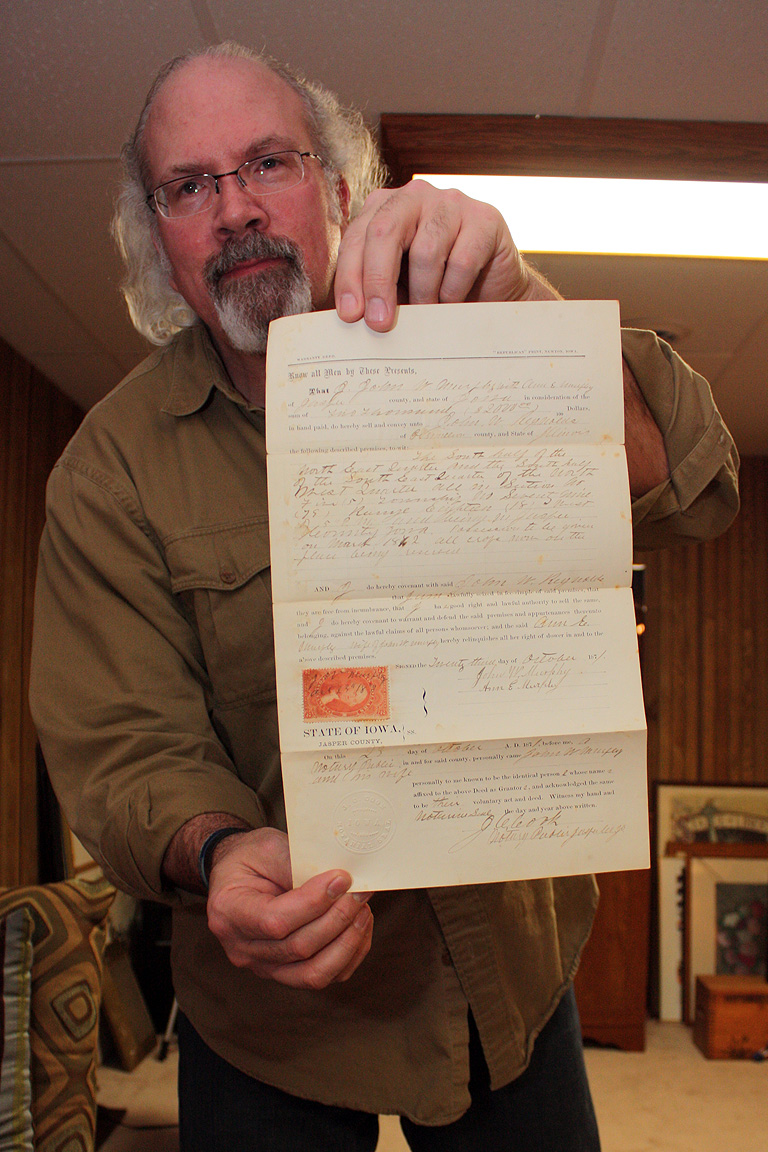 WARRANTY DEED. "REPUBLICAN" PRINT, NEWTON, IOWA.
Know all Men by These Presents,
That I John W Murphy with Ann E. Murphy
of Jasper county, and state of Iowa in consideration of the
sum of Two Thousand ($2000.00) Dollars,
in hand paid, do hereby sell and convey unto John W
of county, and state of Illinois
the following described premises, to-wit:
The South half of the
North East Quarter and the South half
of the South East Quarter of the North
West Quarter all in Section No
Five (5) Township No Seventy Nine
(79) Range Eighteen (18) West
and being in Jasper
County Iowa Possession to be given
on March 1872 all crops now on the
place being reserved
AND I do hereby covenant with said John W. Reynolds
that lawfully seized in fee simple of said premises, that
they are free from incumbrance, that I ha a good right and lawful authority to sell the same,
and I do hereby covenant to warrant and defend the said premises and appurtenances thereunto
belonging, against the lawful claims of all persons whomsoever; and the said Ann E
Murphy wife of John W Murphy hereby relinquishes all her right of dower in and to the
above described premises.
SIGNED the Twenty third day of October 1871.
John W. Murphy
Ann E. Murphy
STATE OF IOWA, } SS.
JASPER COUNTY,
On this 23 day of October A. D. 1871 before me, a
Notary Public in and for said county, personally came John W Murphy
and his wife
personally to me known to be the identical person s whose name s
affixed to the above Deed as Grantor s, and acknowledged the same
to be their voluntary act and deed. Witness my hand and
Notarial Seal the day and year above written.
Cook
Notary Public